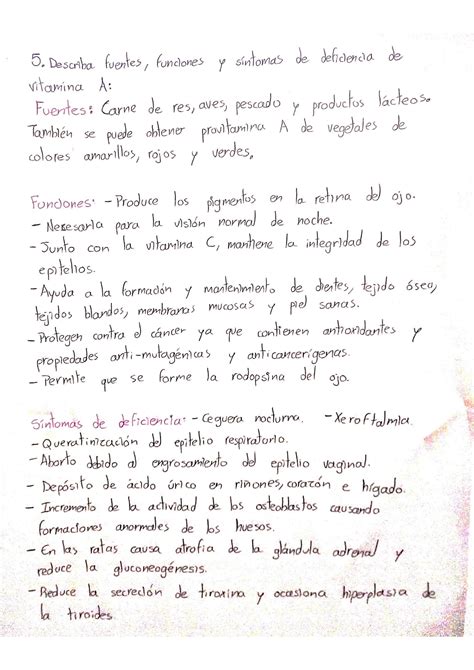 5. Describa fuentes, funciones y síntomas de deficiencia de
vitamina A:
Fuentes: Carne de res, aves, pescado y productos lácteos.
También se puede obtener provitamina A de vegetales de
colores amarillos, rojos y verdes.
Funciones: - Produce los pigmentos en la retina del ojo.
- Necesaria para la visión normal de noche.
- Junto con la vitamina C, mantiene la integridad de los
epitelios.
- Ayuda a la formación y mantenimiento de dientes, tejido óseo,
tejidos blandos, membranas mucosas y piel sanas.
- Protegen contra el cáncer ya que contienen antioxidantes y
propiedades anti-mutagénicas y anticancerígenas.
- Permite que se forme la rodopsina del ojo.
Síntomas de deficiencia: - Ceguera nocturna. - Xeroftalmia.
- Queratinización del epitelio respiratorio.
- Aborto debido al engrosamiento del epitelio vaginal.
- Depósito de ácido úrico en riñones, corazón e hígado.
- Incremento de la actividad de los osteoblastos causando
formaciones anormales de los huesos.
- En las ratas causa atrofia de la glándula adrenal y
reduce la gluconeogénesis.
- Reduce la secreción de tiroxina y ocasiona hiperplasia de
la tiroides.